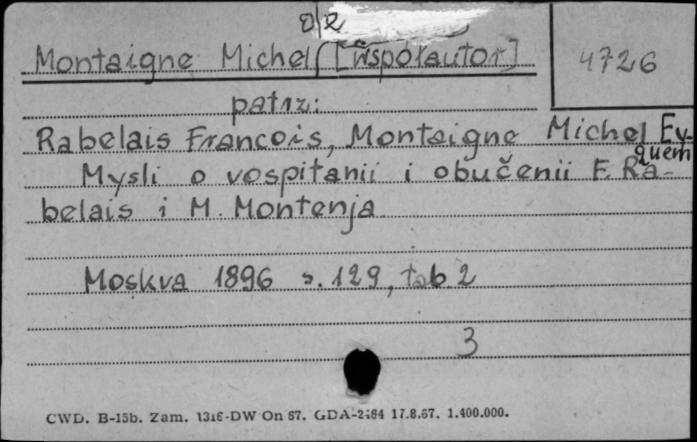 Montaigne Michel [Współautor]
4726
patrz:
Rabelais Francois, Montaigne Michel Ey-
quem
Mysli o vospitanii i obučenii F. Ra-
belais i M. Montenja
Moskva 1896 s. 129, tab 2
3
CWD. B-15b. Zam. 1316-DW On 67. GDA-2464 17.8.67. 1.400.000.